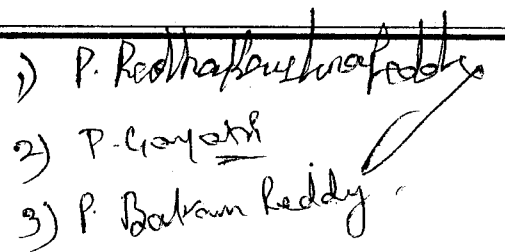 1) P. Radhakrushna Reddy
2) P. Gayatri
3) P. Balram Reddy.